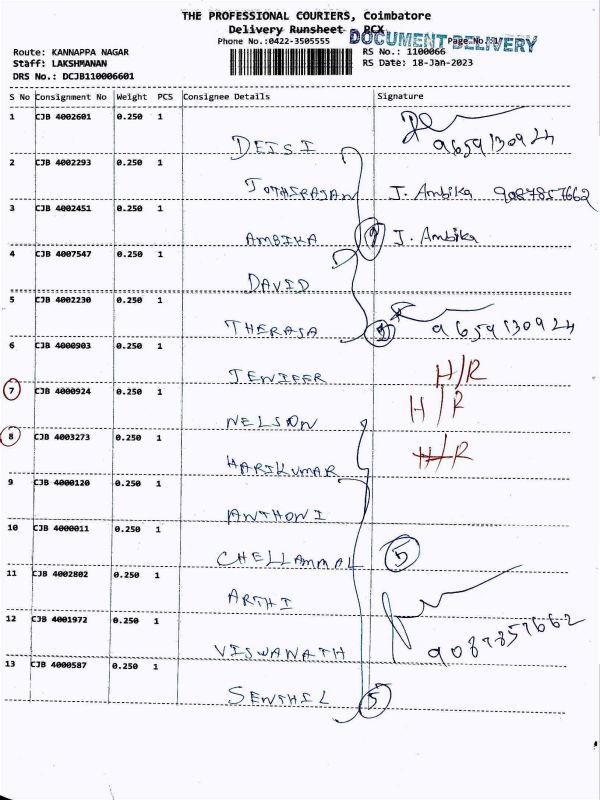 THE PROFESSIONAL COURIERS, Coimbatore
Delivery Runsheet PCX
Phone No.:0422-3505555 Page No.
DOCUMENT DELIVERY
Route: KANNAPPA NAGAR RS No.: 1100066
Staff: LAKSHMANAN RS Date: 18-Jan-2023
DRS No.: DCJB110006601
S No Consignment No Weight PCS Consignee Details Signature
1 CJB 4002601 0.250 1
DEISI 9659130924
2 CJB 4002293 0.250 1
JOTHIRAJAN J. Ambika 9087857662
3 CJB 4002451 0.250 1
AMBIKA J. Ambika
4 CJB 4007547 0.250 1
DAVID
5 CJB 4002230 0.250 1
THERASA 9659130924
6 CJB 4000903 0.250 1
JENIFER H/R
7 CJB 4000924 0.250 1
NELSON H/R
8 CJB 4003273 0.250 1
HARIKUMAR H/R
9 CJB 4000120 0.250 1
ANTHONI
10 CJB 4000011 0.250 1
CHELLAMMAL 5
11 CJB 4002802 0.250 1
ARTHI
12 CJB 4001972 0.250 1
VISWANATH 9087857662
13 CJB 4000587 0.250 1
SENTHIL 5